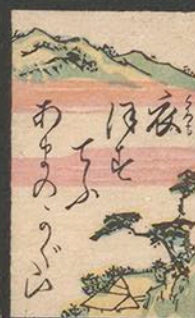 衣
ほす
てふ
あまのかぐ山